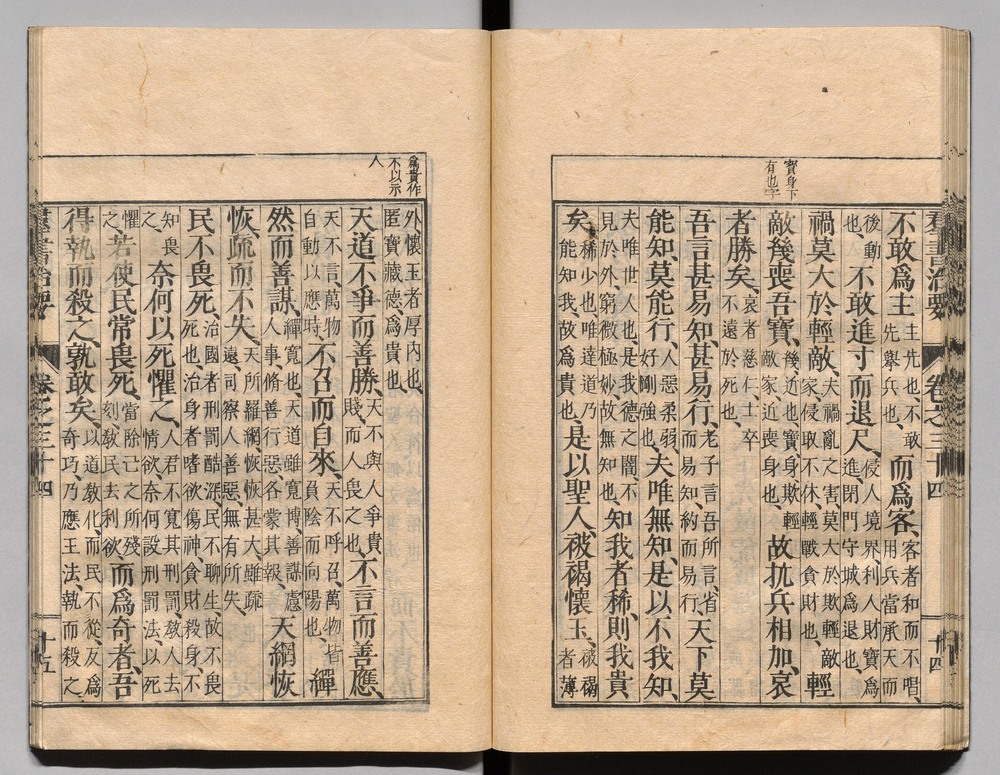 群書治要 卷之三十四 十四
寶身下
有也字
不敢爲主、主先也、不敢先舉兵也、而爲客、客者和而不唱、用兵當承天而
後動也、不敢進寸而退尺、侵人境界、利人財寶爲進、閉門守城爲退也、
禍莫大於輕敵、夫禍亂之害、莫大於欺輕敵家、侵取不休、輕戰貪財也、輕
敵幾喪吾寶、幾近也、寶身、欺輕敵家、近喪身也、故抗兵相加、哀
者勝矣、哀者慈仁、士卒不遠於死也、
吾言甚易知、甚易行、老子言、吾所言、省而易知、約而易行、天下莫
能知、莫能行、人惡柔弱、好剛強也、夫唯無知、是以不我知、
夫唯世人也、是我德之闇、不見於外、窮微極妙、故無知也、知我者稀、則我貴
矣、稀少也、唯達道乃能知我、故爲貴也、是以聖人、被褐懷玉、被褐者薄
爲貴作
不以示
人
外懷玉者厚内也、匿寶藏德、爲貴也、
天道不爭而善勝、天不與人爭貴賤、而人畏之也、不言而善應、
天不言、萬物自動以應時、不召而自來、天不呼召、萬物皆負陰而向陽也、繟
然而善謀、繟寬也、天道雖寬博、善謀慮人事、脩善行惡、各蒙其報、天網恢
恢、疏而不失、天所羅網、恢恢甚大、雖疏遠、司察人善惡、無有所失、
民不畏死、治國者刑罰酷深、民不聊生、故不畏死也、治身者嗜欲傷神、貪財殺身、不
知畏之、奈何以死懼之、人君不寬其刑罰、敎人去情欲、奈何設刑罰法、以死
懼之、若使民常畏死、當除己之所殘刻、敎民去利欲、而爲奇者、吾
得執而殺之、孰敢矣、以道敎化、而民不從、反爲奇巧、乃應王法、執而殺之、
群書治要 卷之三十四 十五